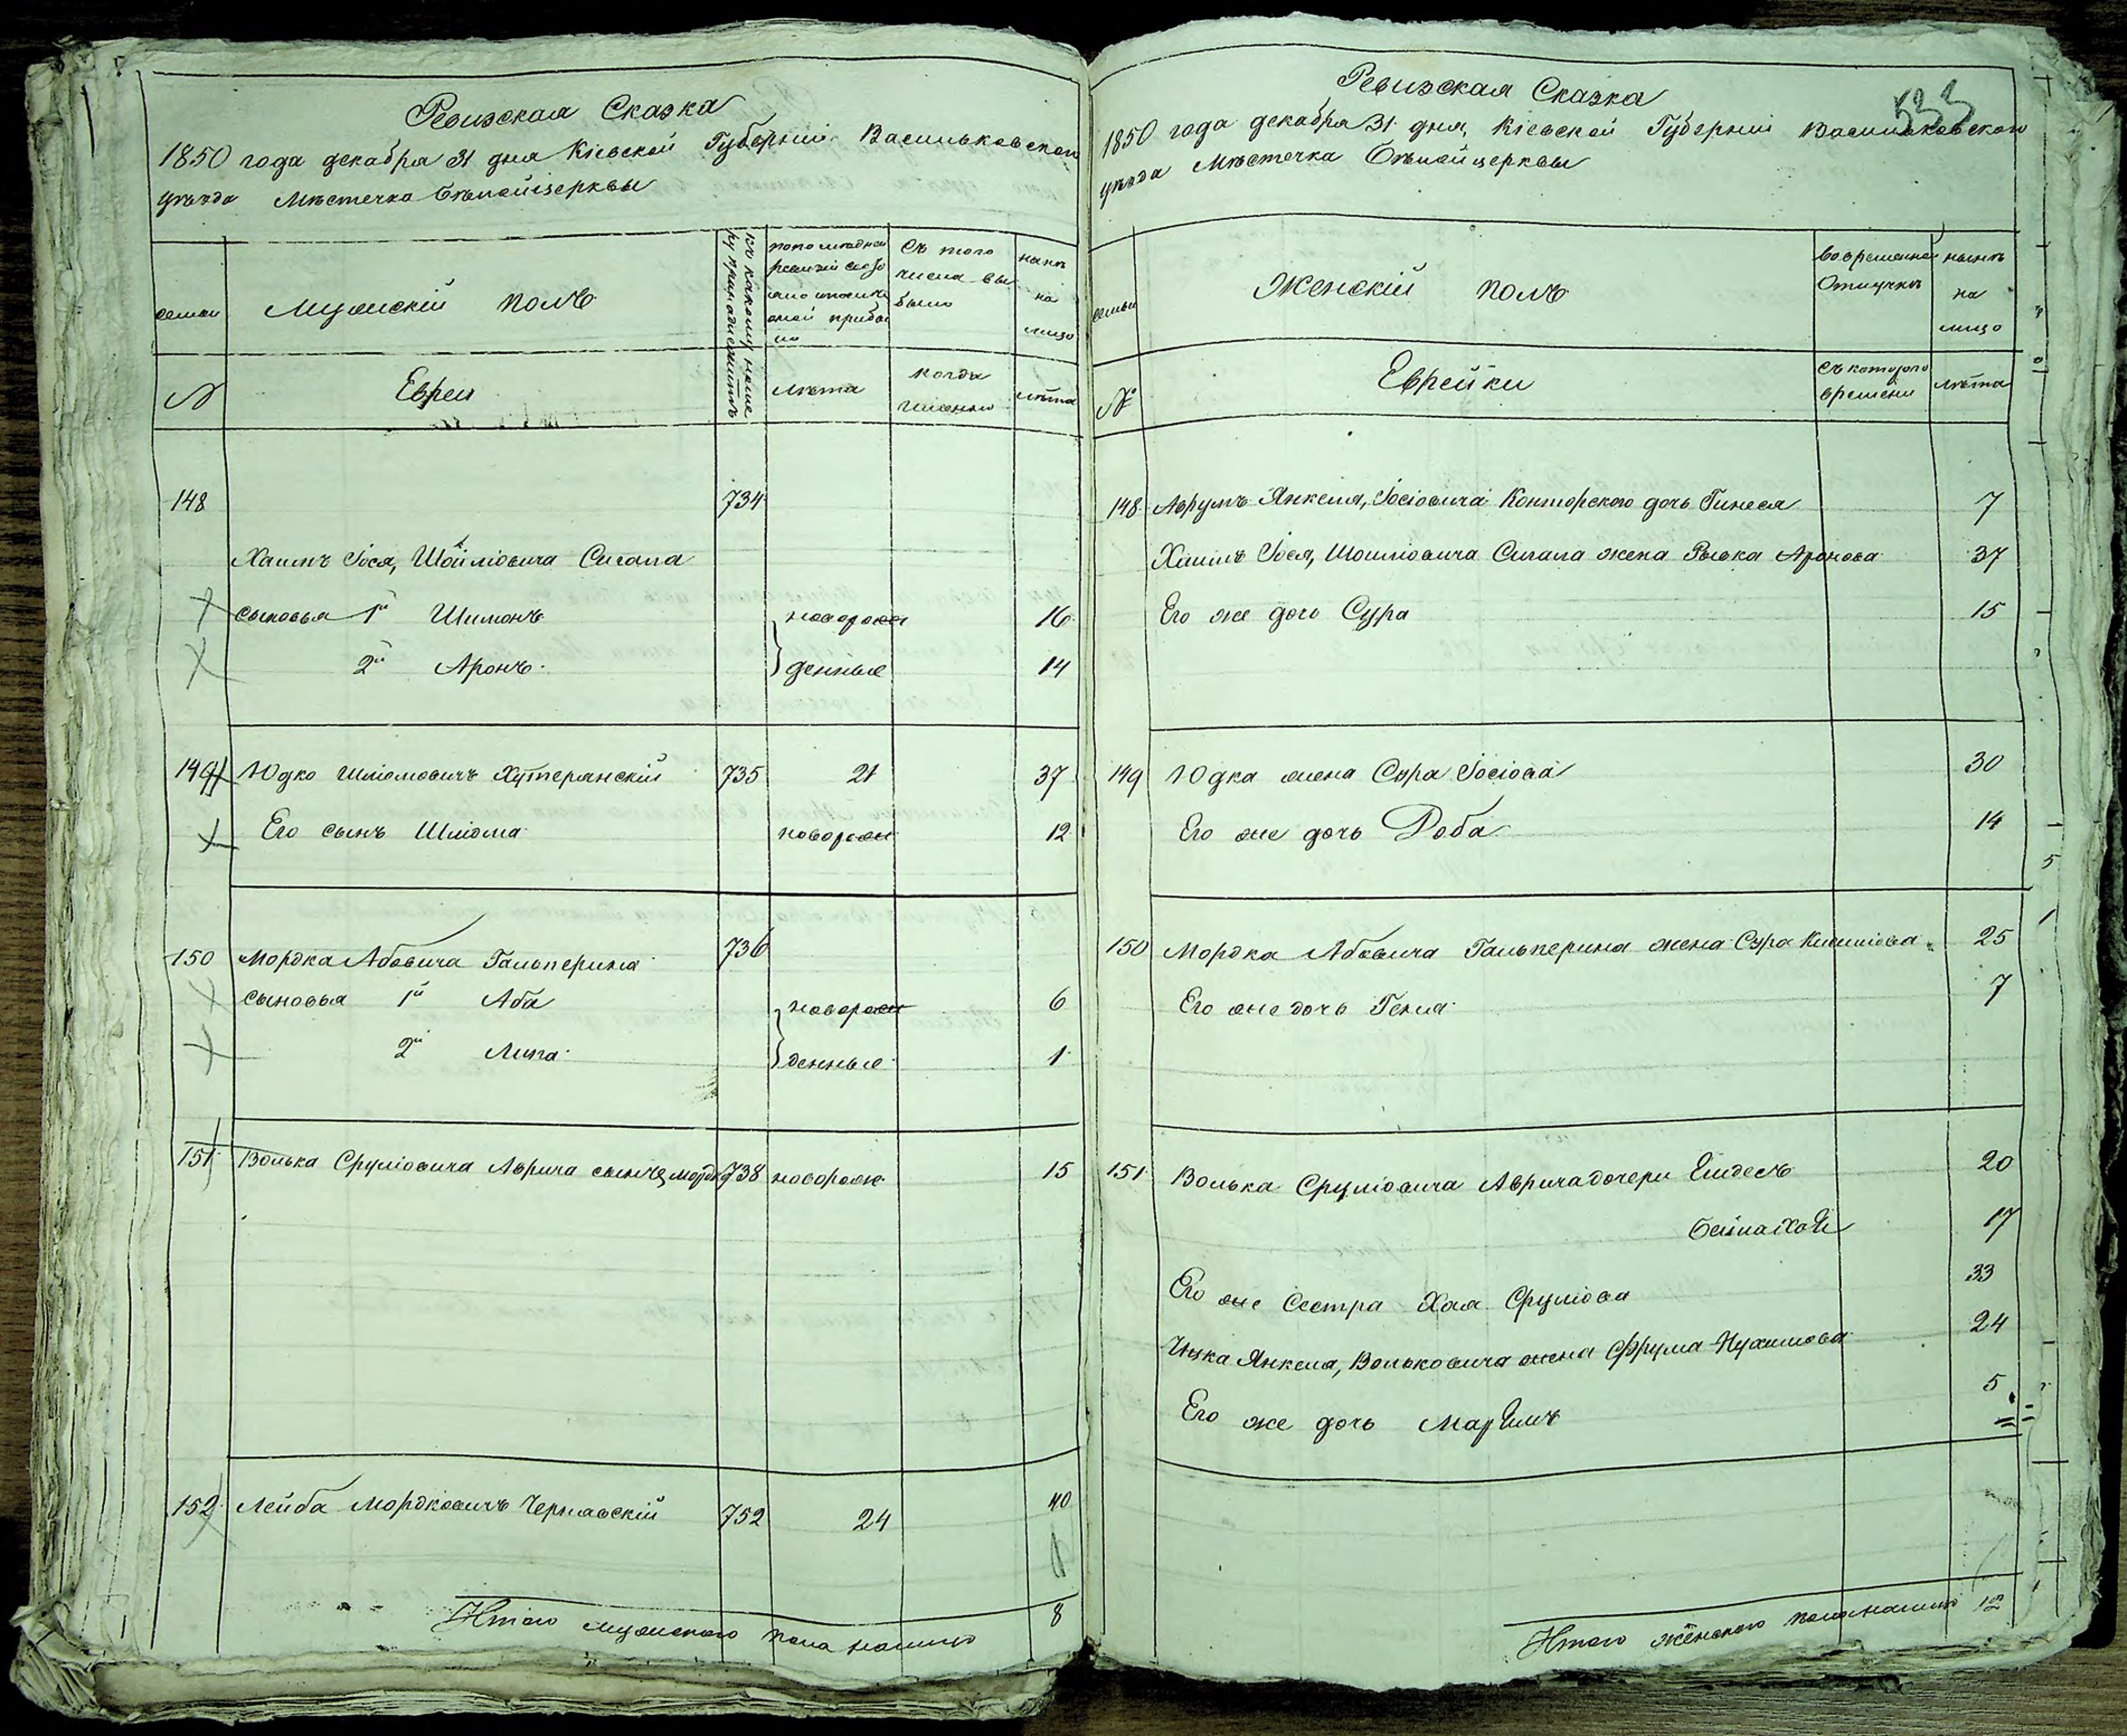 Ревизская Сказка
1850 года декабря 31 дня Кіевской Губерніи Васильковского
уѣзда Мѣстечка Бѣлойцерквы
семьи
Мужскій полъ
къ какому номе
ру принадлежитъ
по последней
ревизіи состо
яло и после
оной прибы
ло
Съ того
числа вы
было
нынѣ
на
лицо
№
Евреи
лѣта
когда
именно
лѣта
148 734
Хаимъ Iося, Шойліовича Сигала
сыновья 1й Шимонъ новорож 16
2й Аронъ денные 14
149 Юдко Шліомовичъ Хутерянскій 735 21 37
Его сынъ Шліома новорож 12
150 Мордка Абовича Гальперина 736
сыновья 1й Аба новорож 6
2й Липа денные 1
151 Волька Сруліовича Аврича сынъ Мордко 738 новорож 15
152 Лейба Мордковичъ Чернявскій 752 24 40
Итого мужского пола налицо 8
533
Ревизская Сказка
1850 года декабря 31 дня, Кіевской Губерніи Васильковского
уѣзда Мѣстечка Бѣлойцерквы
семьи
Женскій полъ
Во временной
Отлучкѣ
нынѣ
на
лицо
№
Еврейки
съ которого
времени
лѣта
148 Аврумъ Янкеля, Iосіовича Конторского дочь Гинеся 7
Хаимъ Iося, Шоиліовича Сигала жена Рывка Аронова 37
Его же дочь Сура 15
149 Юдка жена Сура Iосіова 30
Его же дочь Доба 14
150 Мордка Абовича Гальперина жена Сура 25
Его же дочь Геня 7
151 Волька Сруліовича Аврича дочери Ейдель 20
Бейла Хая 17
Его же Сестра Хая Сруліова 33
Ицка Янкеля, Вольковича жена Фрума Нухимова 24
Его же дочь Маріимъ 5
Итого женского пола налицо 12